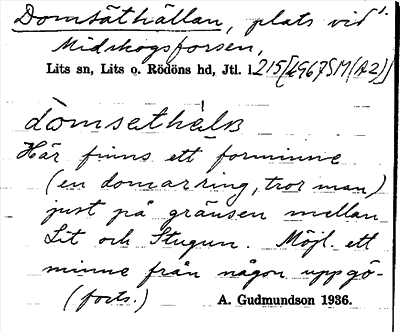 Domsäthällan, plats vid 1.
Midskogsforsen,
Lits sn, Lits o. Rödöns hd, Jtl. l. 215[1967SM(A2)]
Här finns ett fornminne
(en domarring, tror man)
just på gränsen mellan
Lit och Stugun. Möjl. ett
minne från någon uppgö-
(forts.) A. Gudmundson 1936.